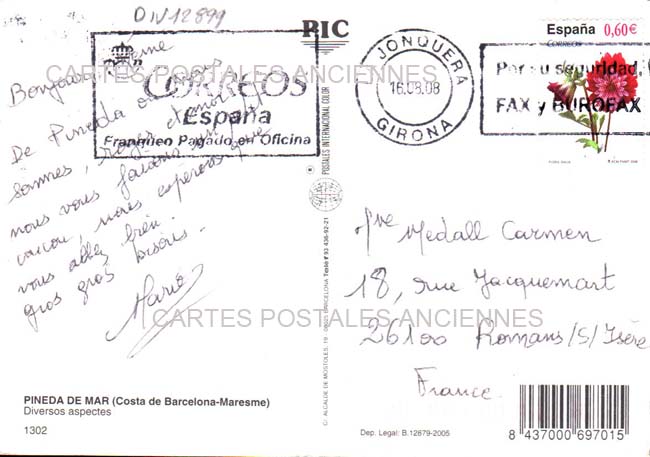 DIV12899
BIC
CORREOS
España
Franqueo Pagado en Oficina
JONQUERA
16.08.08
GIRONA
España 0,60€
CORREOS
Por su seguridad,
FAX y BUROFAX
CARTES POSTALES ANCIENNES
Bonjour
De Pineda ou nous
sommes,
nous vous faisons un petit
coucou, nous espérons que
vous allez bien.
gros gros bisous.
Mario
POSTALES INTERNACIONAL COLOR
C/ ALCALDE DE MOSTOLES, 19 - 08025 BARCELONA Teléf.* 93 436-92-21
Mve Medall Carmen
18, rue Jacquemart
26100 Romans/S/Isère
France.
CARTES POSTALES ANCIENNES
PINEDA DE MAR (Costa de Barcelona-Maresme)
Diversos aspectes
1302
Dep. Legal: B.12679-2005
8 437000 697015